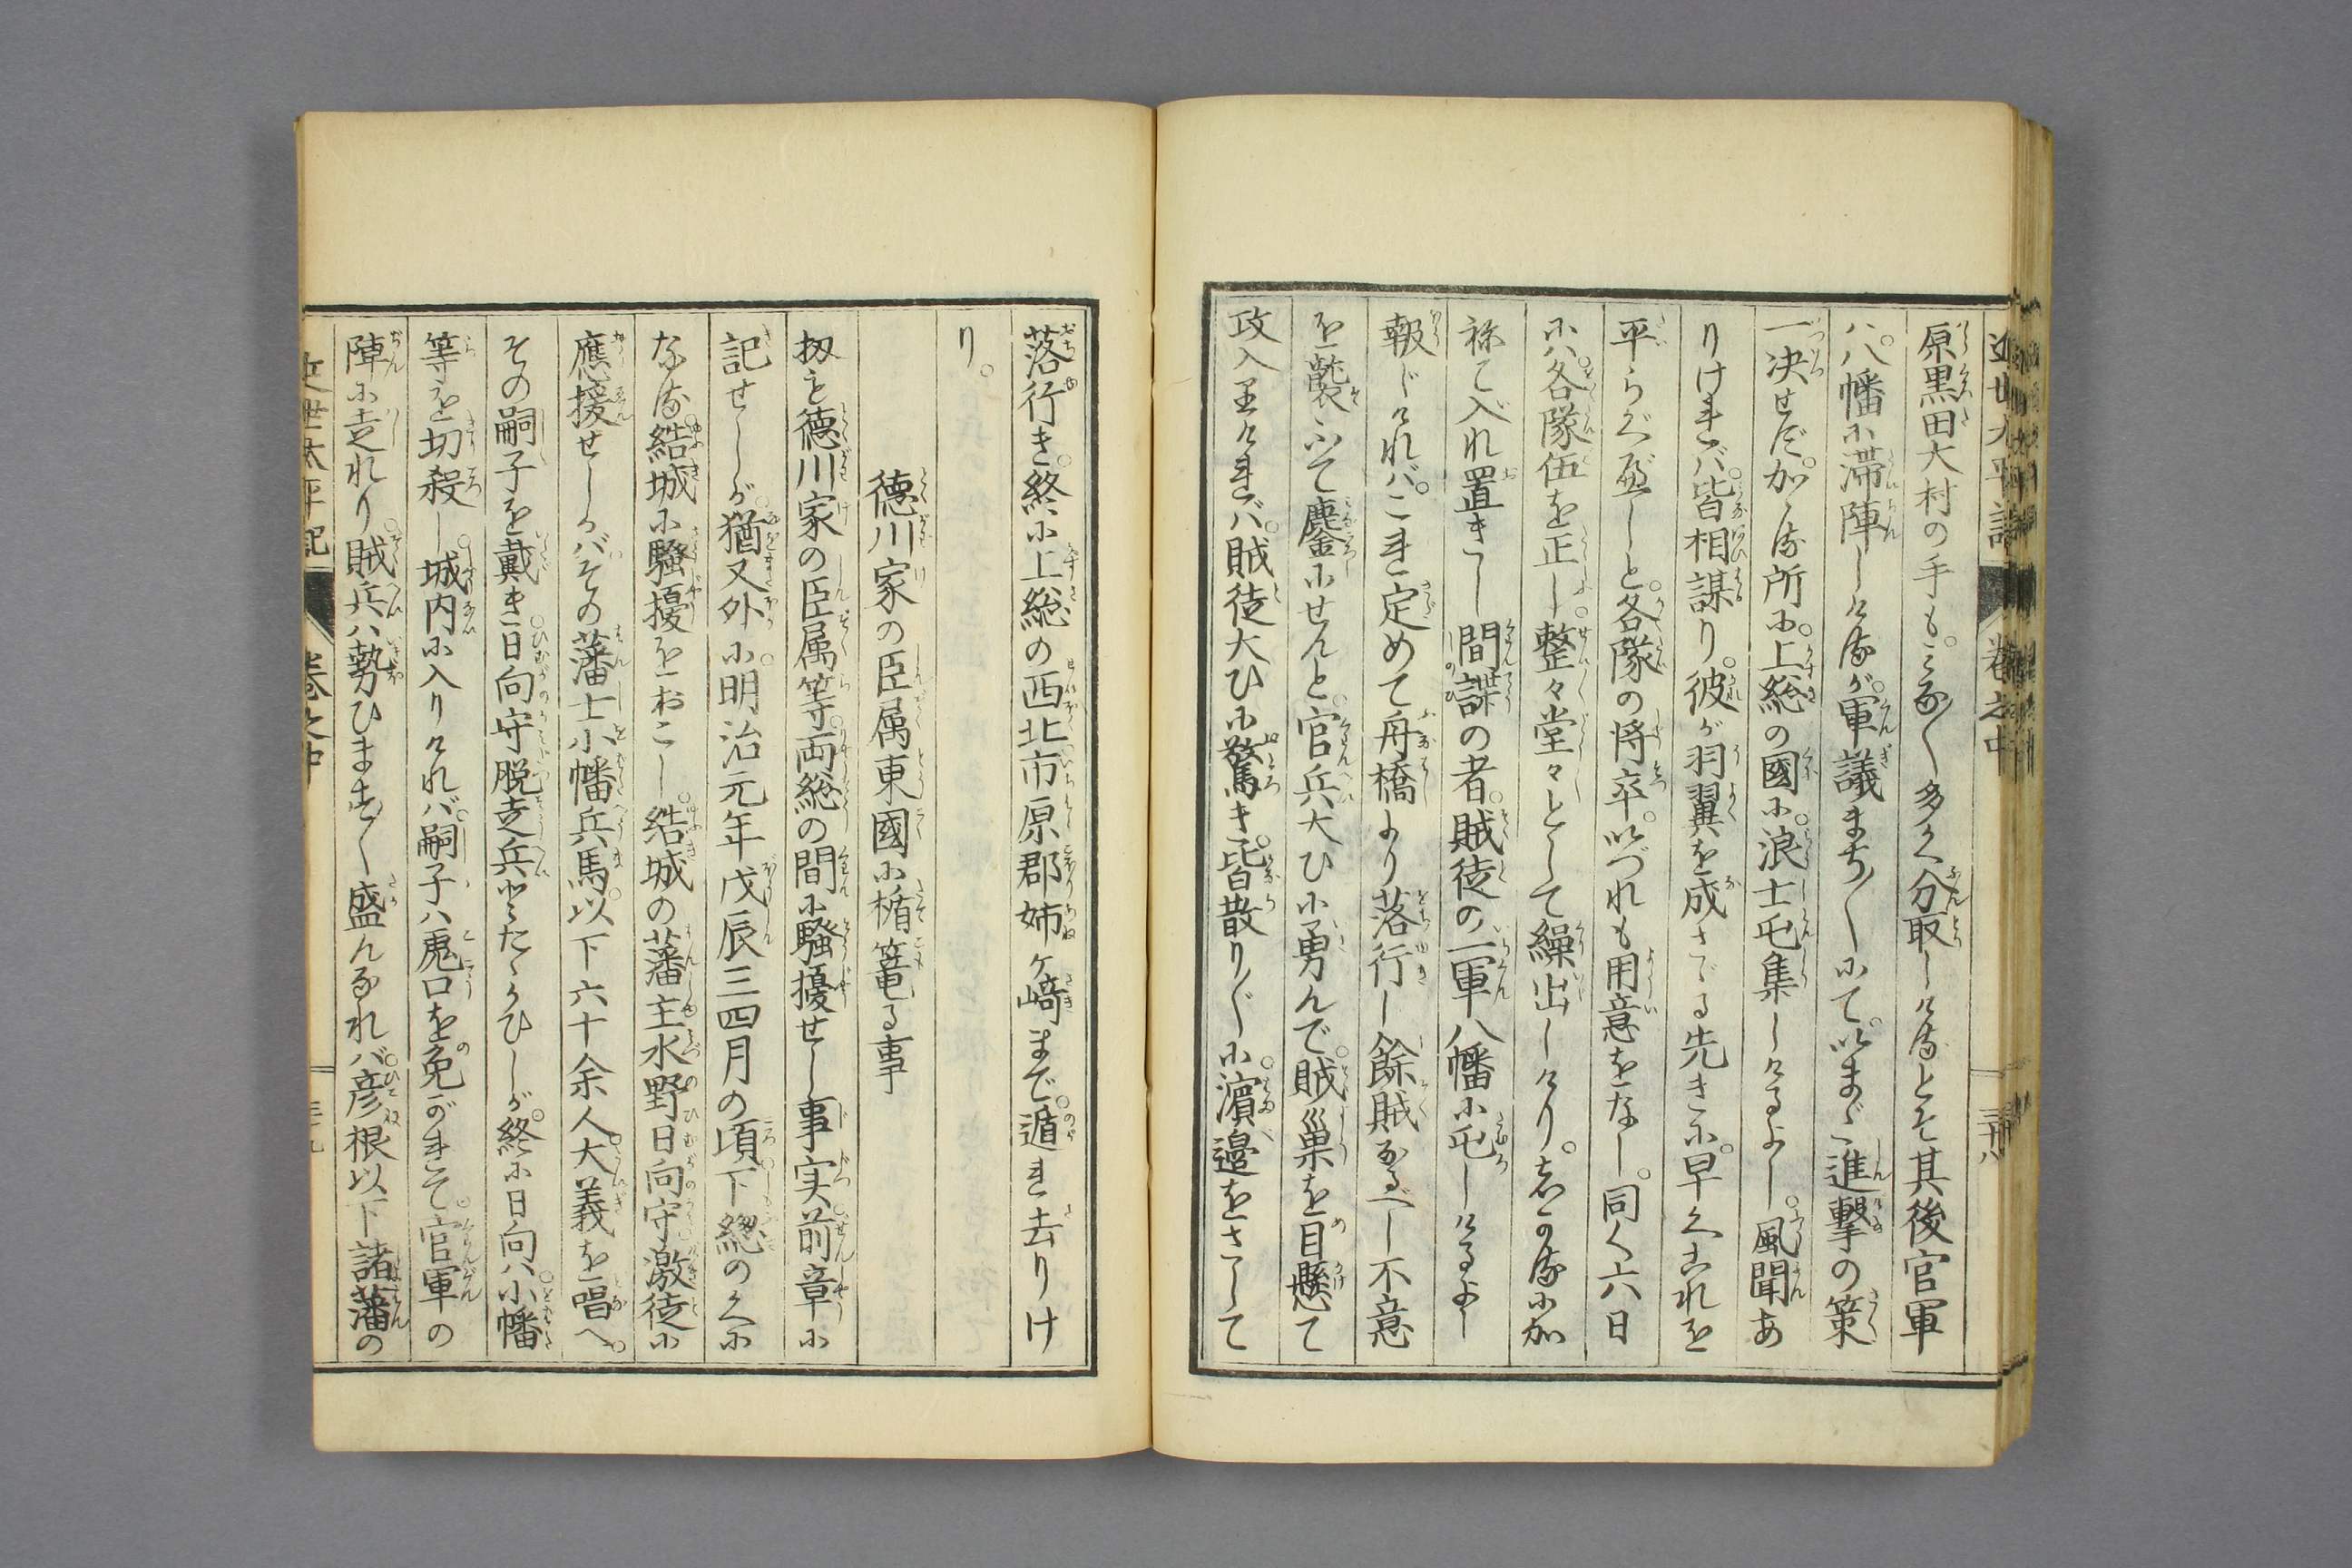 近世太平記 巻之中 三十八
原黒田大村の手も。ミな〳〵多く分取しけるとそ其後官軍
ハ。八幡に滞陣しけるが。軍議まち〳〵にて。いまだ進撃の策
一决せず。かゝる所に。上総の國に。浪士屯集しけるよし。風聞あ
りけれバ。皆相謀り。彼が羽翼を成さゞる先きに。早くこれを
平らぐべしと。各隊の将卒。いづれも用意をなし。同く六日
にハ。各隊伍を正し。整々堂々として繰出しけり。しかるに加
祢て入れ置きし間諜の者。賊徒の一軍八幡に屯しけるよし
報じけれバ。これ定めて舟橋より落行し餘賊なるべし不意
を襲いて鏖にせんと。官兵大ひに勇んで。賊巣を目懸て
攻入りけれバ。賊徒大ひに驚き。皆散り〴〵に。濵邉をさして
落行き。終に上総の西北市原郡姉ヶ﨑まで。遁れ去りけ
り。
徳川家の臣属東國に楯篭る事
扨も徳川家の臣属等。両総の間に騒擾せし事実。前章に
記せしが。猶又外に。明治元年戊辰三四月の頃。下総のくに
なる結城に騒擾をおこし。結城の藩主水野日向守。激徒に
應援せしかバその藩士小幡兵馬。以下六十余人。大義を唱へ。
その嗣子を戴き。日向守脱走兵とたゝかひしが。終に日向ハ。小幡
等を切殺し。城内に入りけれバ。嗣子ハ虎口を免がれて。官軍の
陣に走れり。賊兵ハ勢ひます〳〵盛んなれバ。彦根以下諸藩の
近世太平記 巻之中